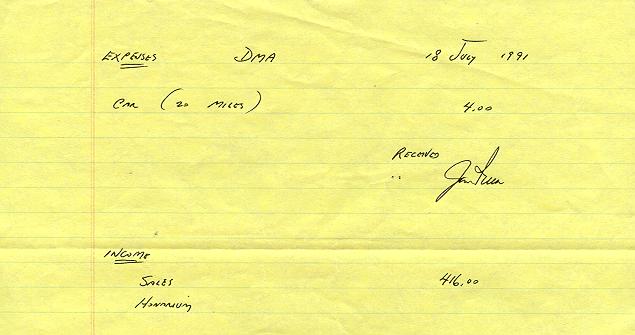 EXPENSES DMA 18 JULY 1991
CAR (20 MILES) 4.00
RECEIVED
INCOME
SALES 416.00
HONARIUM